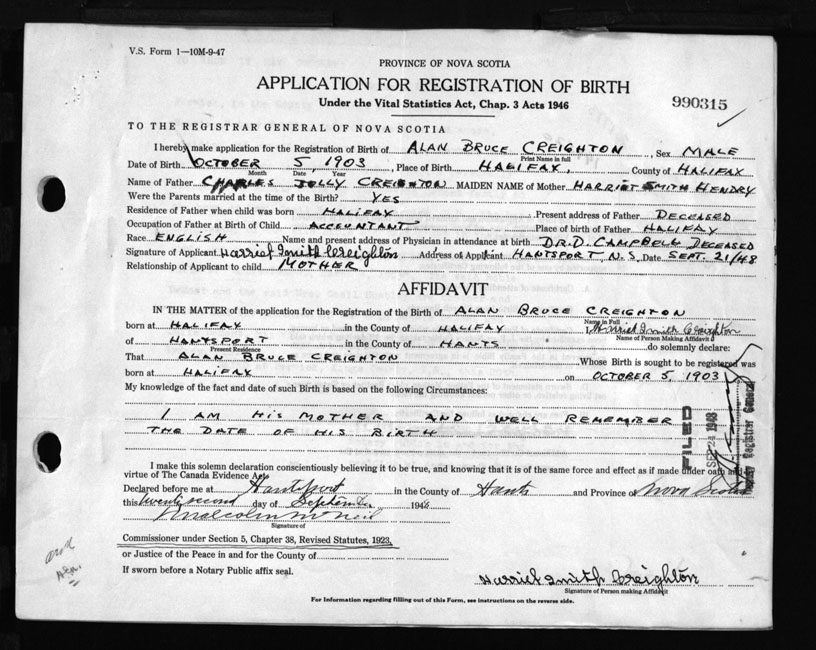 V.S. Form 1—10M-9-47
PROVINCE OF NOVA SCOTIA
APPLICATION FOR REGISTRATION OF BIRTH
Under the Vital Statistics Act, Chap. 3 Acts 1946
990315
TO THE REGISTRAR GENERAL OF NOVA SCOTIA
I hereby make application for the Registration of Birth of ALAN BRUCE CREIGHTON, Sex MALE
Print Name in full
Date of Birth OCTOBER 5, 1903, Place of Birth HALIFAX, County of HALIFAX
Month Date, Year
Name of Father CHARLES JOLLY CREIGHTON MAIDEN NAME of Mother HARRIET SMITH HENDRY
Were the Parents married at the time of the Birth? YES
Residence of Father when child was born HALIFAX Present address of Father DECEASED
Occupation of Father at Birth of Child ACCOUNTANT Place of birth of Father HALIFAX
Race ENGLISH Name and present address of Physician in attendance at birth DR. D. CAMPBELL DECEASED
Signature of Applicant Harriet Smith Creighton Address of Applicant HANTSPORT, N.S. Date SEPT. 21/48
Relationship of Applicant to child MOTHER
AFFIDAVIT
IN THE MATTER of the application for the Registration of the Birth of ALAN BRUCE CREIGHTON
Name in Full
born at HALIFAX in the County of HALIFAX I, Harriet Smith Creighton
Name of Person Making Affidavit
of HANTSPORT in the County of HANTS do solemnly declare:
Present Residence
That ALAN BRUCE CREIGHTON Whose Birth is sought to be registered was
born at HALIFAX on OCTOBER 5, 1903
My knowledge of the fact and date of such Birth is based on the following Circumstances:
I AM HIS MOTHER AND WELL REMEMBER
THE DATE OF HIS BIRTH
FILED
SEP 24 1948
Deputy Registrar General
I make this solemn declaration conscientiously believing it to be true, and knowing that it is of the same force and effect as if made under oath and
virtue of The Canada Evidence Act.
Declared before me at Hantsport in the County of Hants and Province of Nova Scotia
this twenty second day of September 1948
Malcolm McNeil
Signature of
Commissioner under Section 5, Chapter 38, Revised Statutes, 1923,
or Justice of the Peace in and for the County of
If sworn before a Notary Public affix seal.
Harriet Smith Creighton
Signature of Person making Affidavit
For Information regarding filling out of this Form, see instructions on the reverse side.